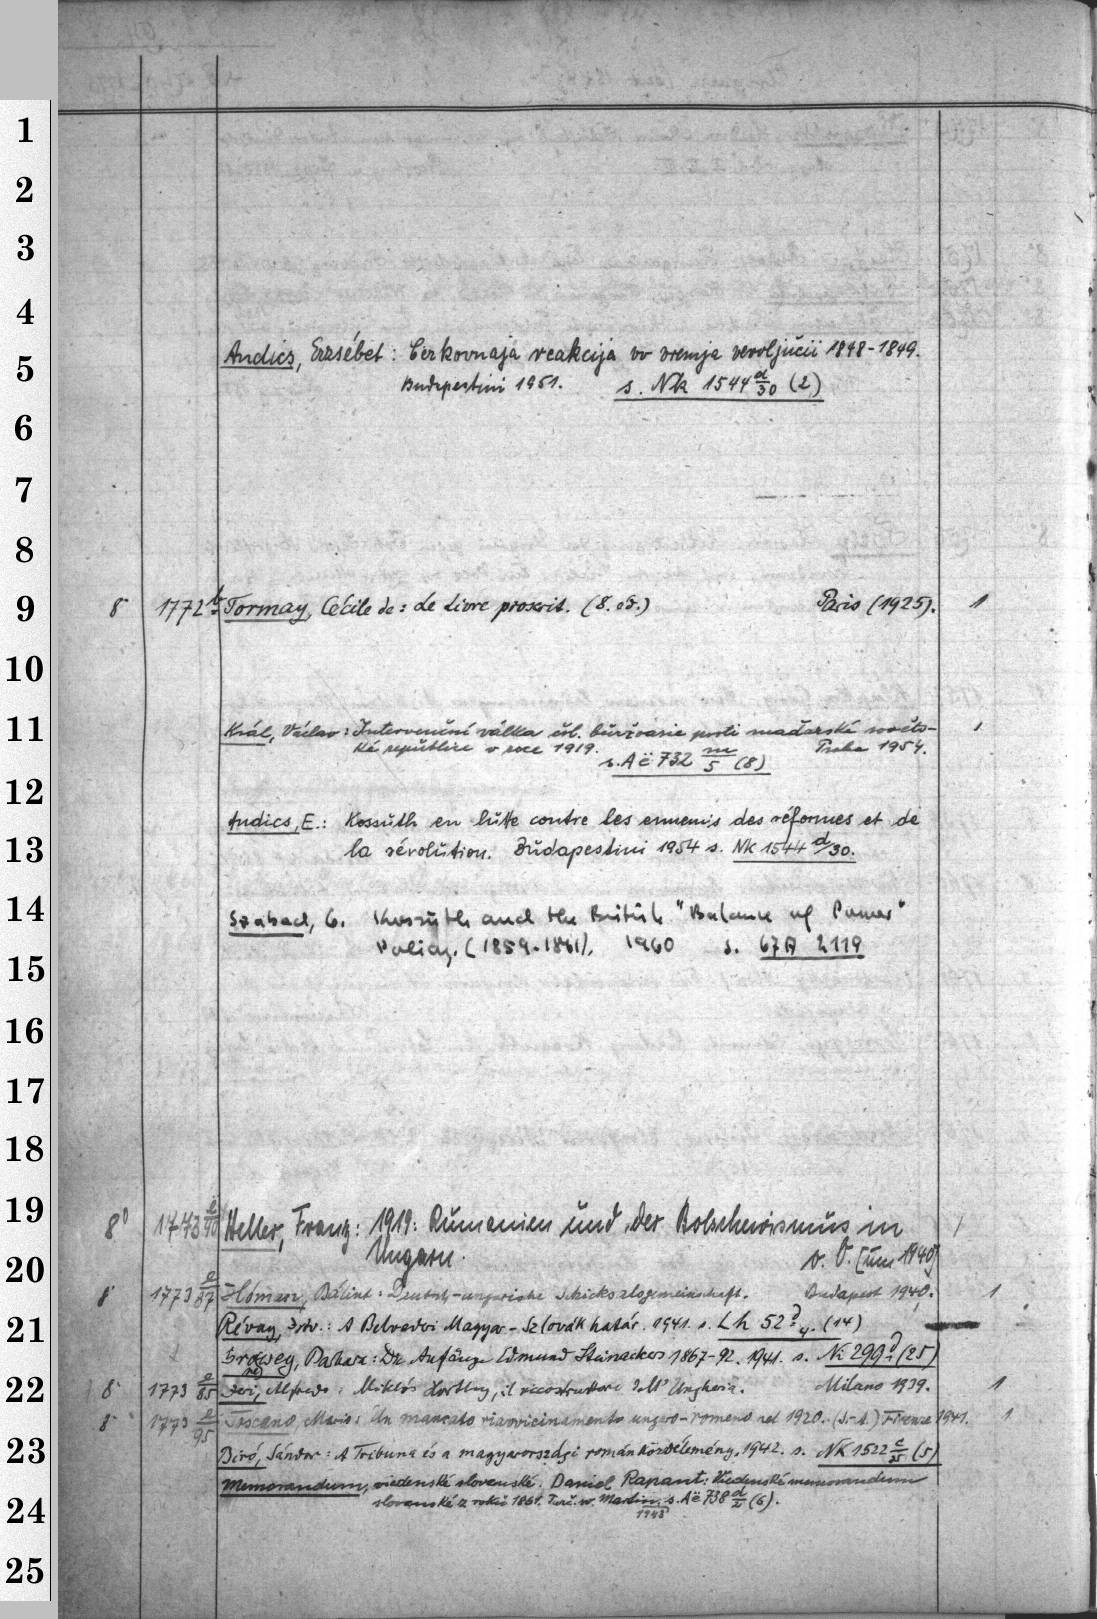 1
2
3
4
Andics, Erzsébet: Cerkovnaja reakcija vo vremja revoljucii 1848-1849.
5
Budapestini 1951. s. Nk 1544 d/30 (2)
6
7
8
9
8° 1772 b Tormay, Cécile de: Le Livre proscrit. (8. éd.) Paris (1925). 1
10
11
Král, Václav: Intervenční válka čsl. buržoasie proti maďarské sověts- 1
ké republice v roce 1919. Praha 1954.
s. Ač 732 m/5 (8)
12
Andics, E.: Kossuth en lutte contre les ennemis des réformes et de
13
la révolution. Budapestini 1954 s. Nk 1544 d/30.
14
Szabad, G. Kossuth and the British "Balance of Power"
15
Policy. (1859-1861), 1960 s. 67A 2119
16
17
18
19
8° 1773 e/90 Heller, Franz: 1919: Rumänien und der Bolschewismus in /
Ungarn. o. O. [um 1940]
20
8° 1773 e/87 Hóman, Bálint: Deutsch-ungarische Schicksalsgemeinschaft. Budapest 1940. 1
21
Révay, Istv.: A Belvederi Magyar-Szlovák határ. 1941. s. Lh 52 (14)
Barbara: Die Anfänge Edmund Steinackers 1867-92. 1941. s. Ni 299 (25)
22
8° 1773 e/85 Alfredo: Miklós Horthy, il ricostruttore dell' Ungheria. Milano 1939. 1
8° 1773 e/95 Toscano, Mario: Un mancato riavvicinamento ungaro-romeno nel 1920. (S.-A.) Firenze 1941. 1
23
Biró, Sándor: A Tribuna és a magyarországi román közvélemény. 1942. s. NK 1522 c/25 (5)
Memorandum, viedenské slovenské. Daniel Rapant: Viedenské memorandum
24
slovenské z roku 1861. Turč. sv. Martin s. Ač 738 d/2 (6).
1943
25